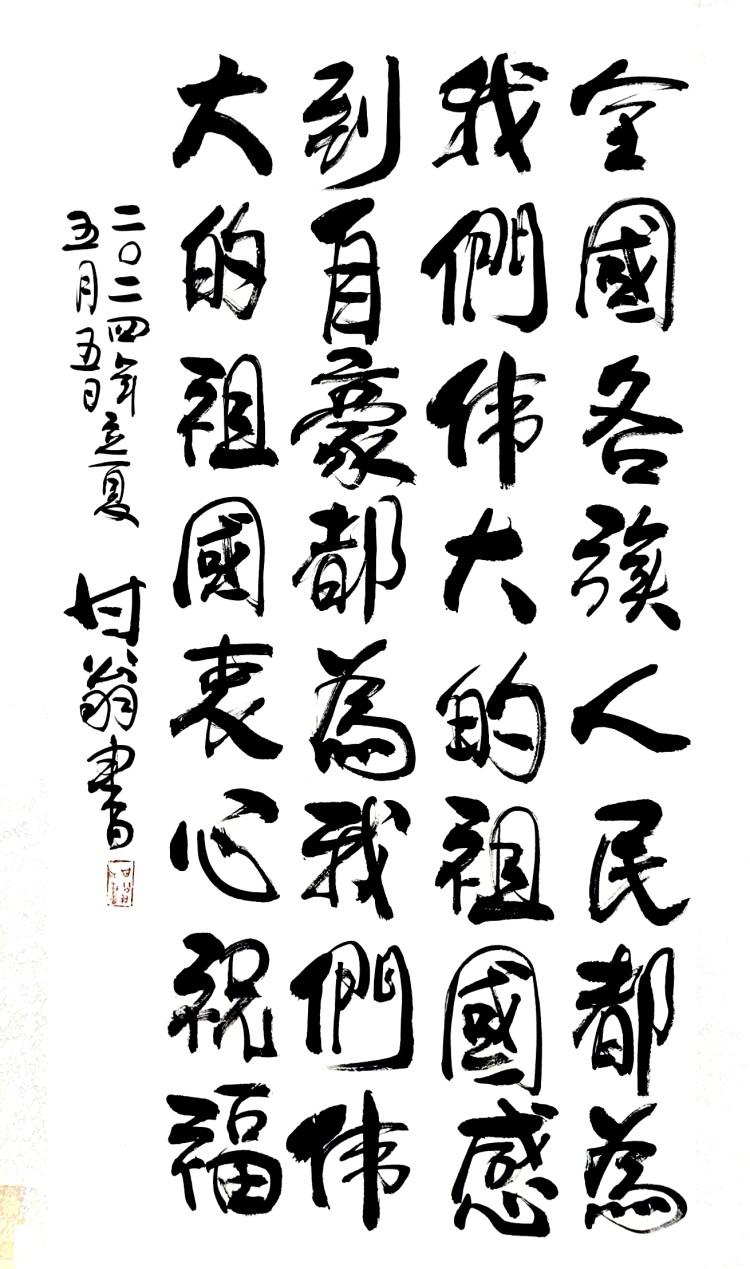 全國各族人民都為
我們伟大的祖國感
到自豪都為我們伟
大的祖國衷心祝福
二〇二四年立夏
五月五日
付翁書